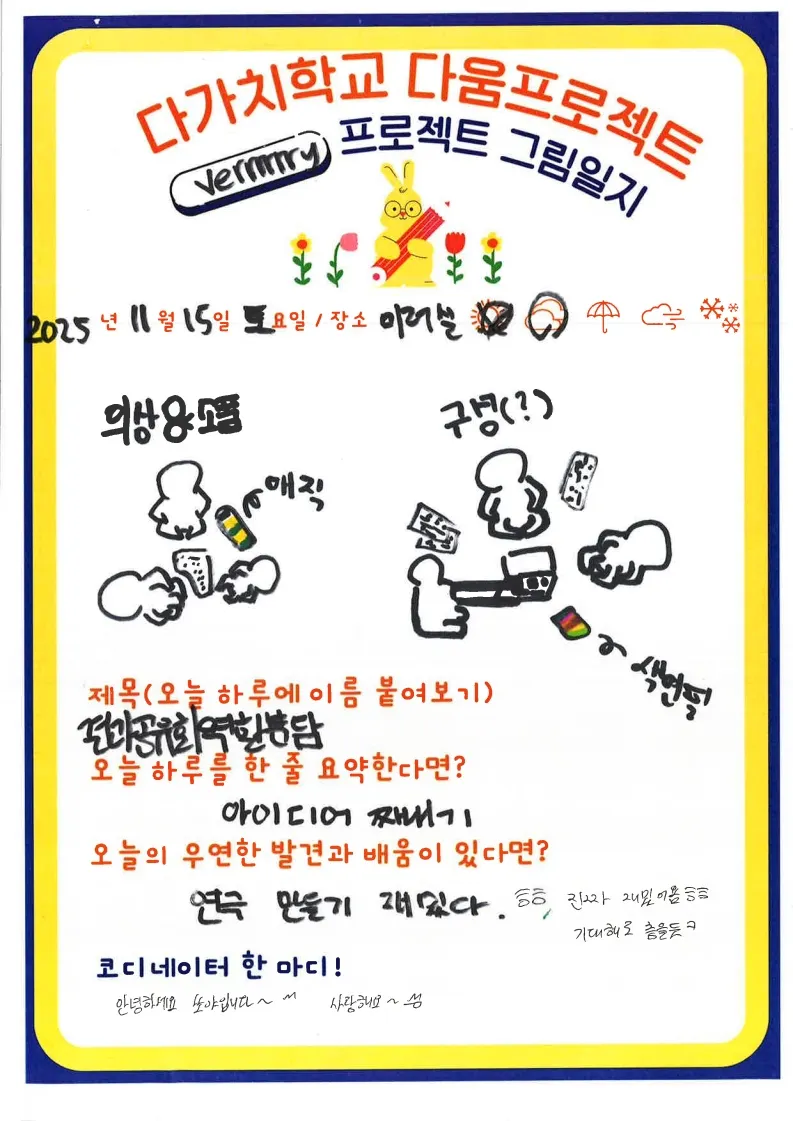 다가치학교 다움프로젝트
verrrrrry 프로젝트 그림일지
2025 년 11 월 15 일 토 요일 / 장소 이러쓸
의상용소품
구성(?)
매직
색연필
제목(오늘 하루에 이름 붙여보기)
결과공유회역할분담
오늘 하루를 한 줄 요약한다면?
아이디어 짜내기
오늘의 우연한 발견과 배움이 있다면?
연극 만들기 재밌다. ㅎㅎ 진짜 재밌어욤ㅎㅎ
기대해도 좋을듯ㅋ
코디네이터 한 마디!
안녕하세요 쏘야입니다~ ^^ 사랑해요~